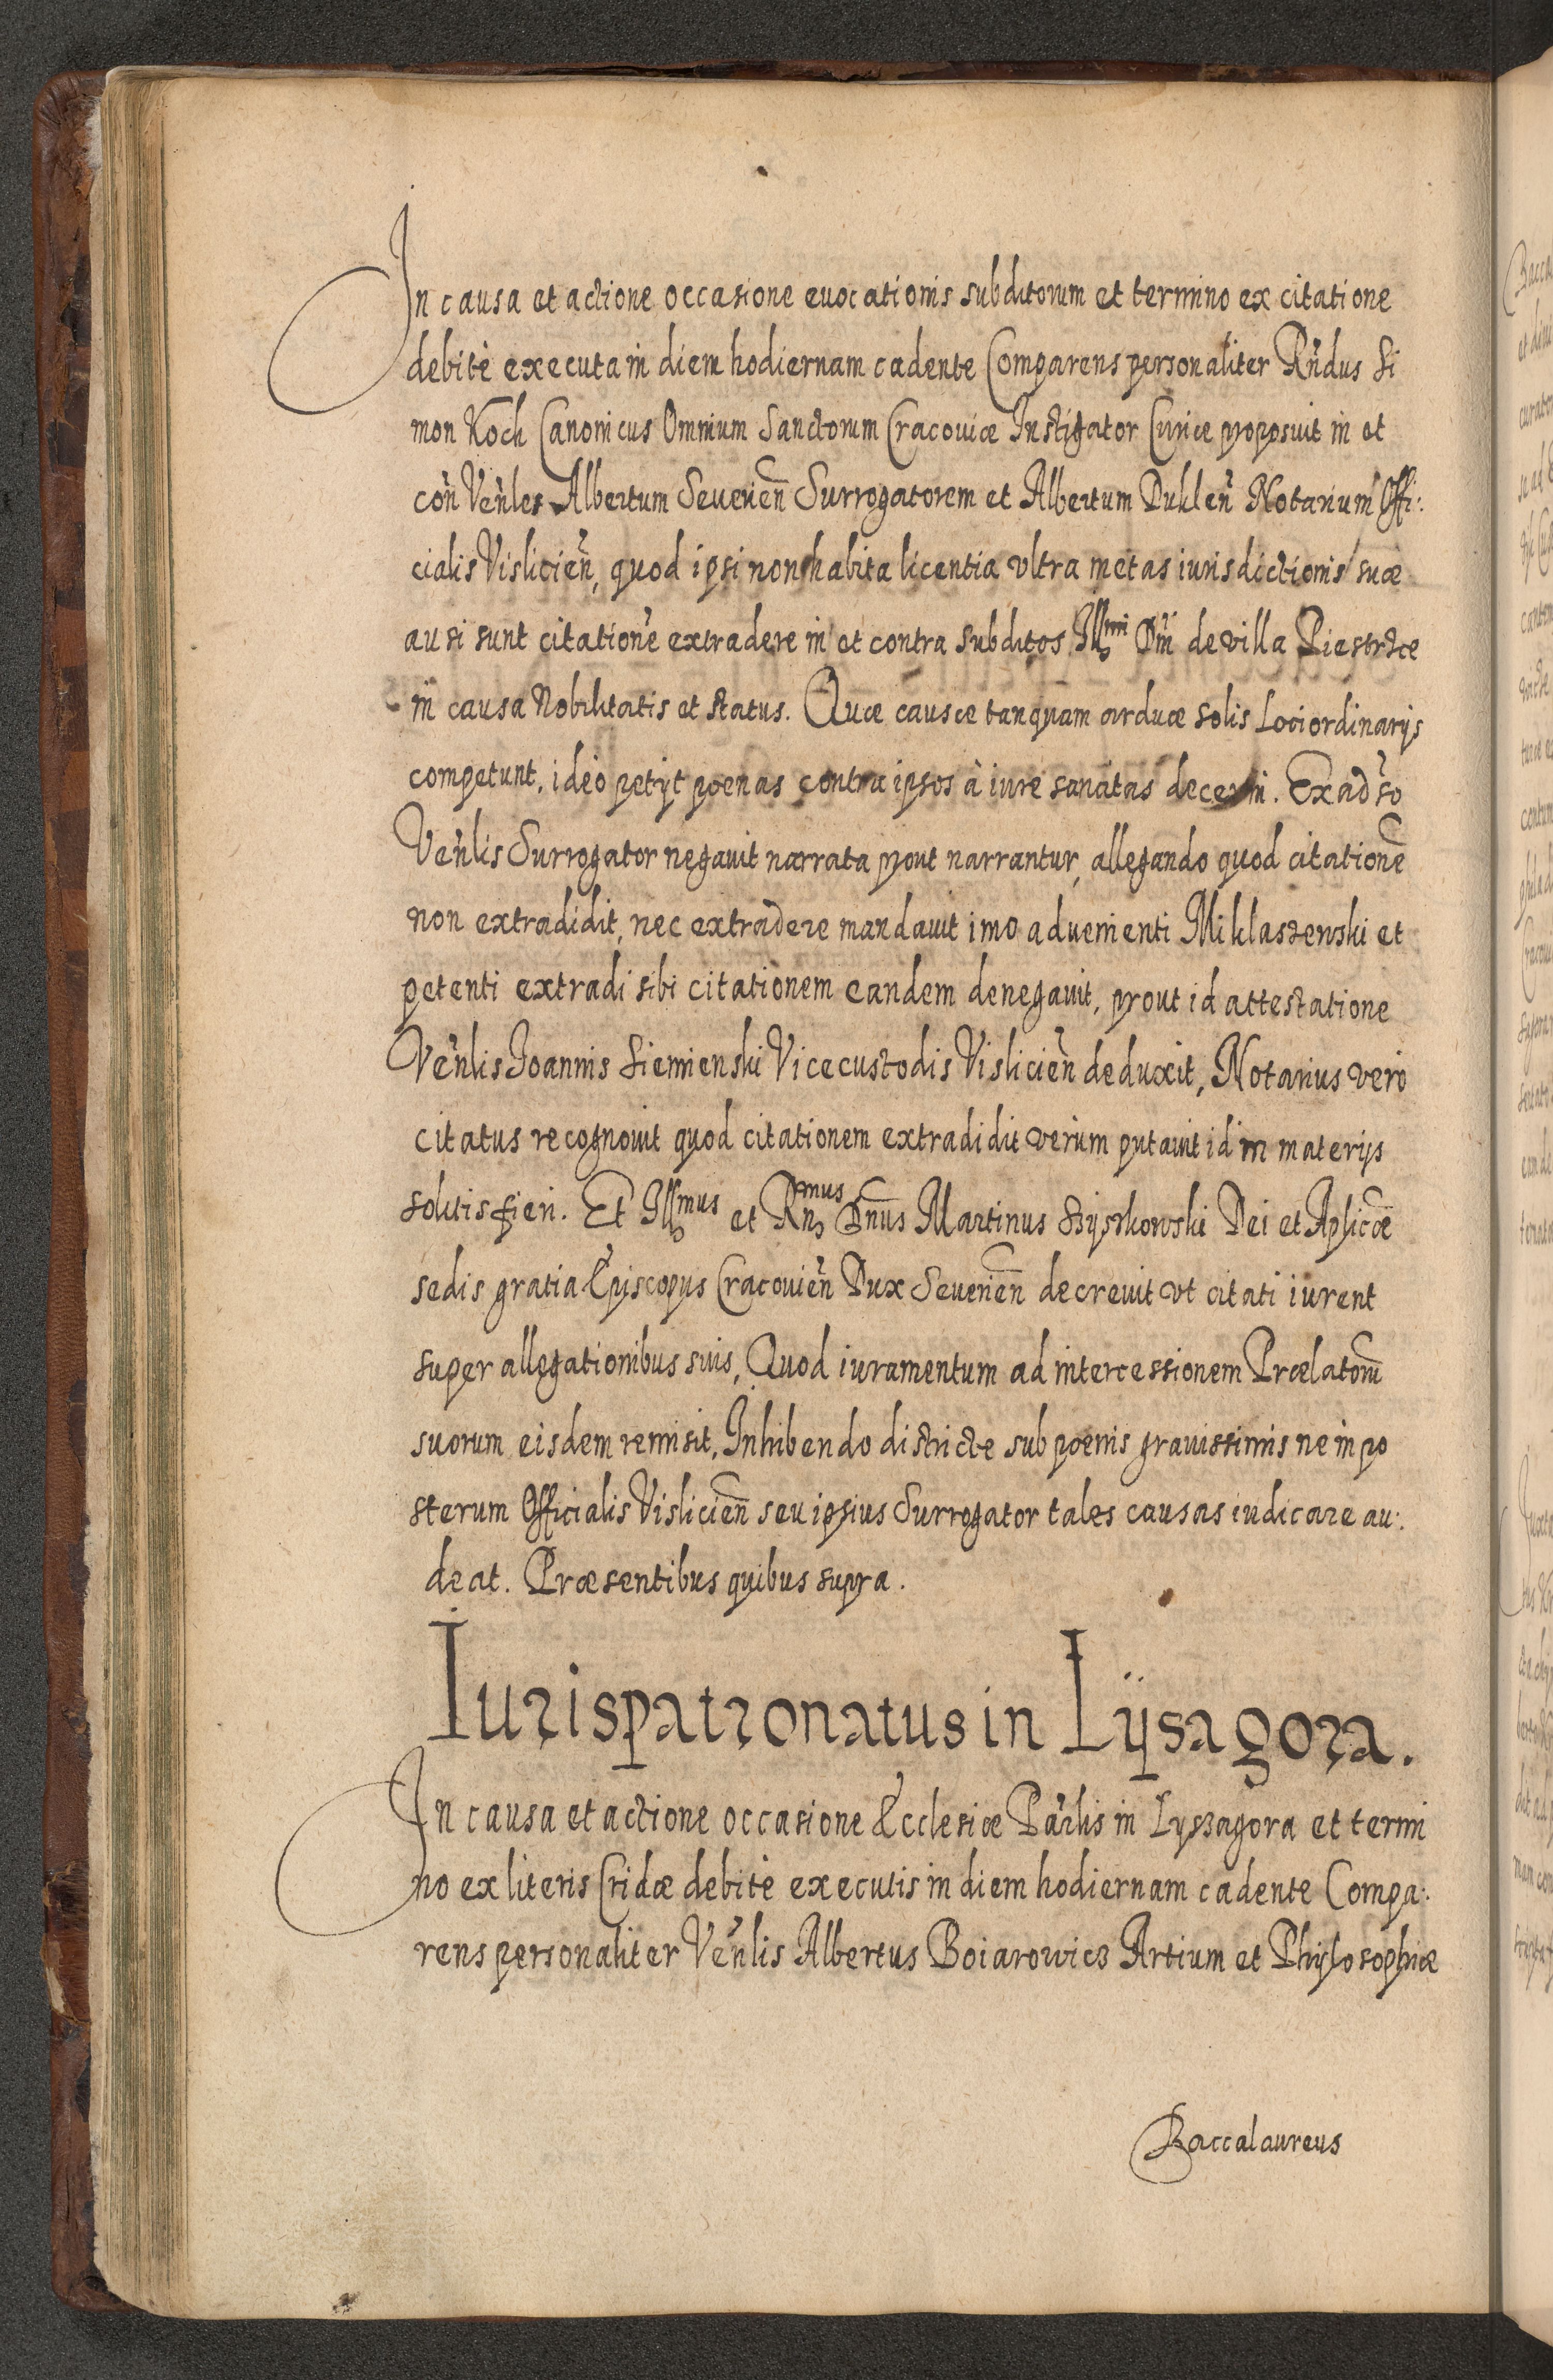 In causa et actione occasione euocationis subditorum et termino ex citatione
debitè executa in diem hodiernam cadente Comparens personaliter Rńdus Si
mon Koch Canonicus Omnium Sanctorum Cracouiæ Instigator Curiæ proposuit in et
coń Veńles Albertum Seuerień Surrogatorem et Albertum Dukleń Notarium Offi:
cialis Vislicień, quod ipsi non habita licentia vltra metas iurisdictionis suæ
ausi sunt citationē extradere in et contra subditos Illmi Dni de villa Piestrzce
in causa Nobilitatis et status. Quæ causæ tanquam arduæ solis Loci ordinarijs
competunt, ideò petijt poenas contra ipsos à iure sancitas decerni. Ex adso
Veńlis Surrogator negauit narrata prout narrantur, allegando quod citationē
non extradidit, nec extradere mandauit imo aduenienti Miklaszewski et
petenti extradi sibi citationem eandem denegauit, prout id attestatione
Veńlis Joannis Siemienski Vicecustodis Vislicień deduxit, Notarius verò
citatus recognouit quod citationem extradidit verùm putauit id in materijs
solitis fieri. Et Illmus et Rńmus Dńus Martinus Szyszkowski Dei et Aplicæ
sedis gratia Episcopus Cracouień Dux Seuerień decreuit vt citati iurent
super allegationibus suis, Quod iuramentum ad intercessionem Prælatorū
suorum eisdem remisit, Inhibendo districte sub poenis grauissimis ne in po
sterum Officialis Vislicień seu ipsius Surrogator tales causas iudicare au:
deat. Præsentibus quibus supra.
Iurispatronatus in Lÿsagora.
In causa et actione occasione Ecclesiæ Pařlis in Lyssagora et termi
no ex literis Cridæ debitè executis in diem hodiernam cadente Compa:
rens personaliter Veńlis Albertus Boiarowicz Artium et Phylosophiæ
Baccalaureus